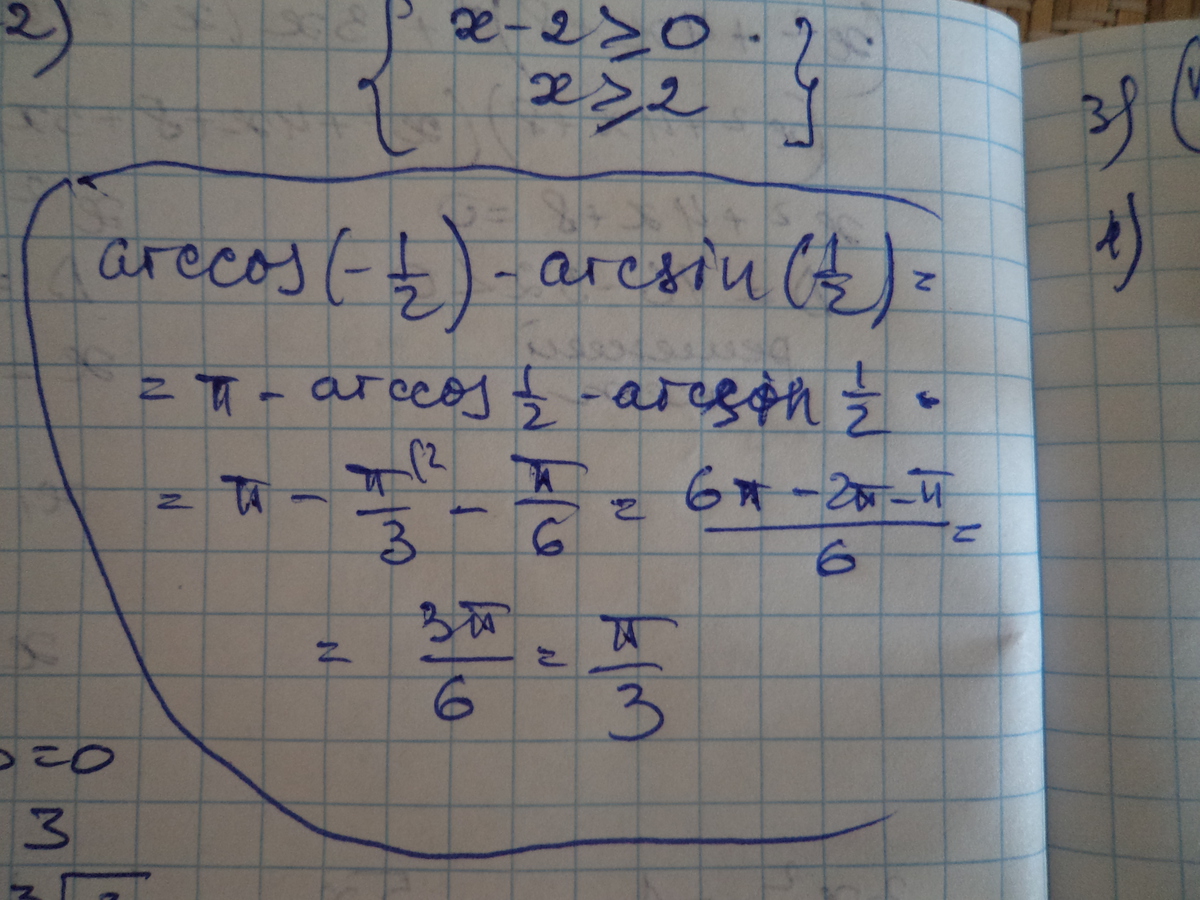 2) x - 2 ≥ 0
x ≥ 2
3) (
4)
arccos(-1/2) - arcsin(1/2) =
= π - arccos 1/2 - arcsin 1/2 =
= π - π/3 (2 - π/6 = (6π - 2π - π)/6 =
= 3π/6 = π/3
=0
3